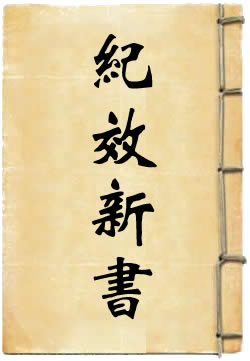 紀效新書